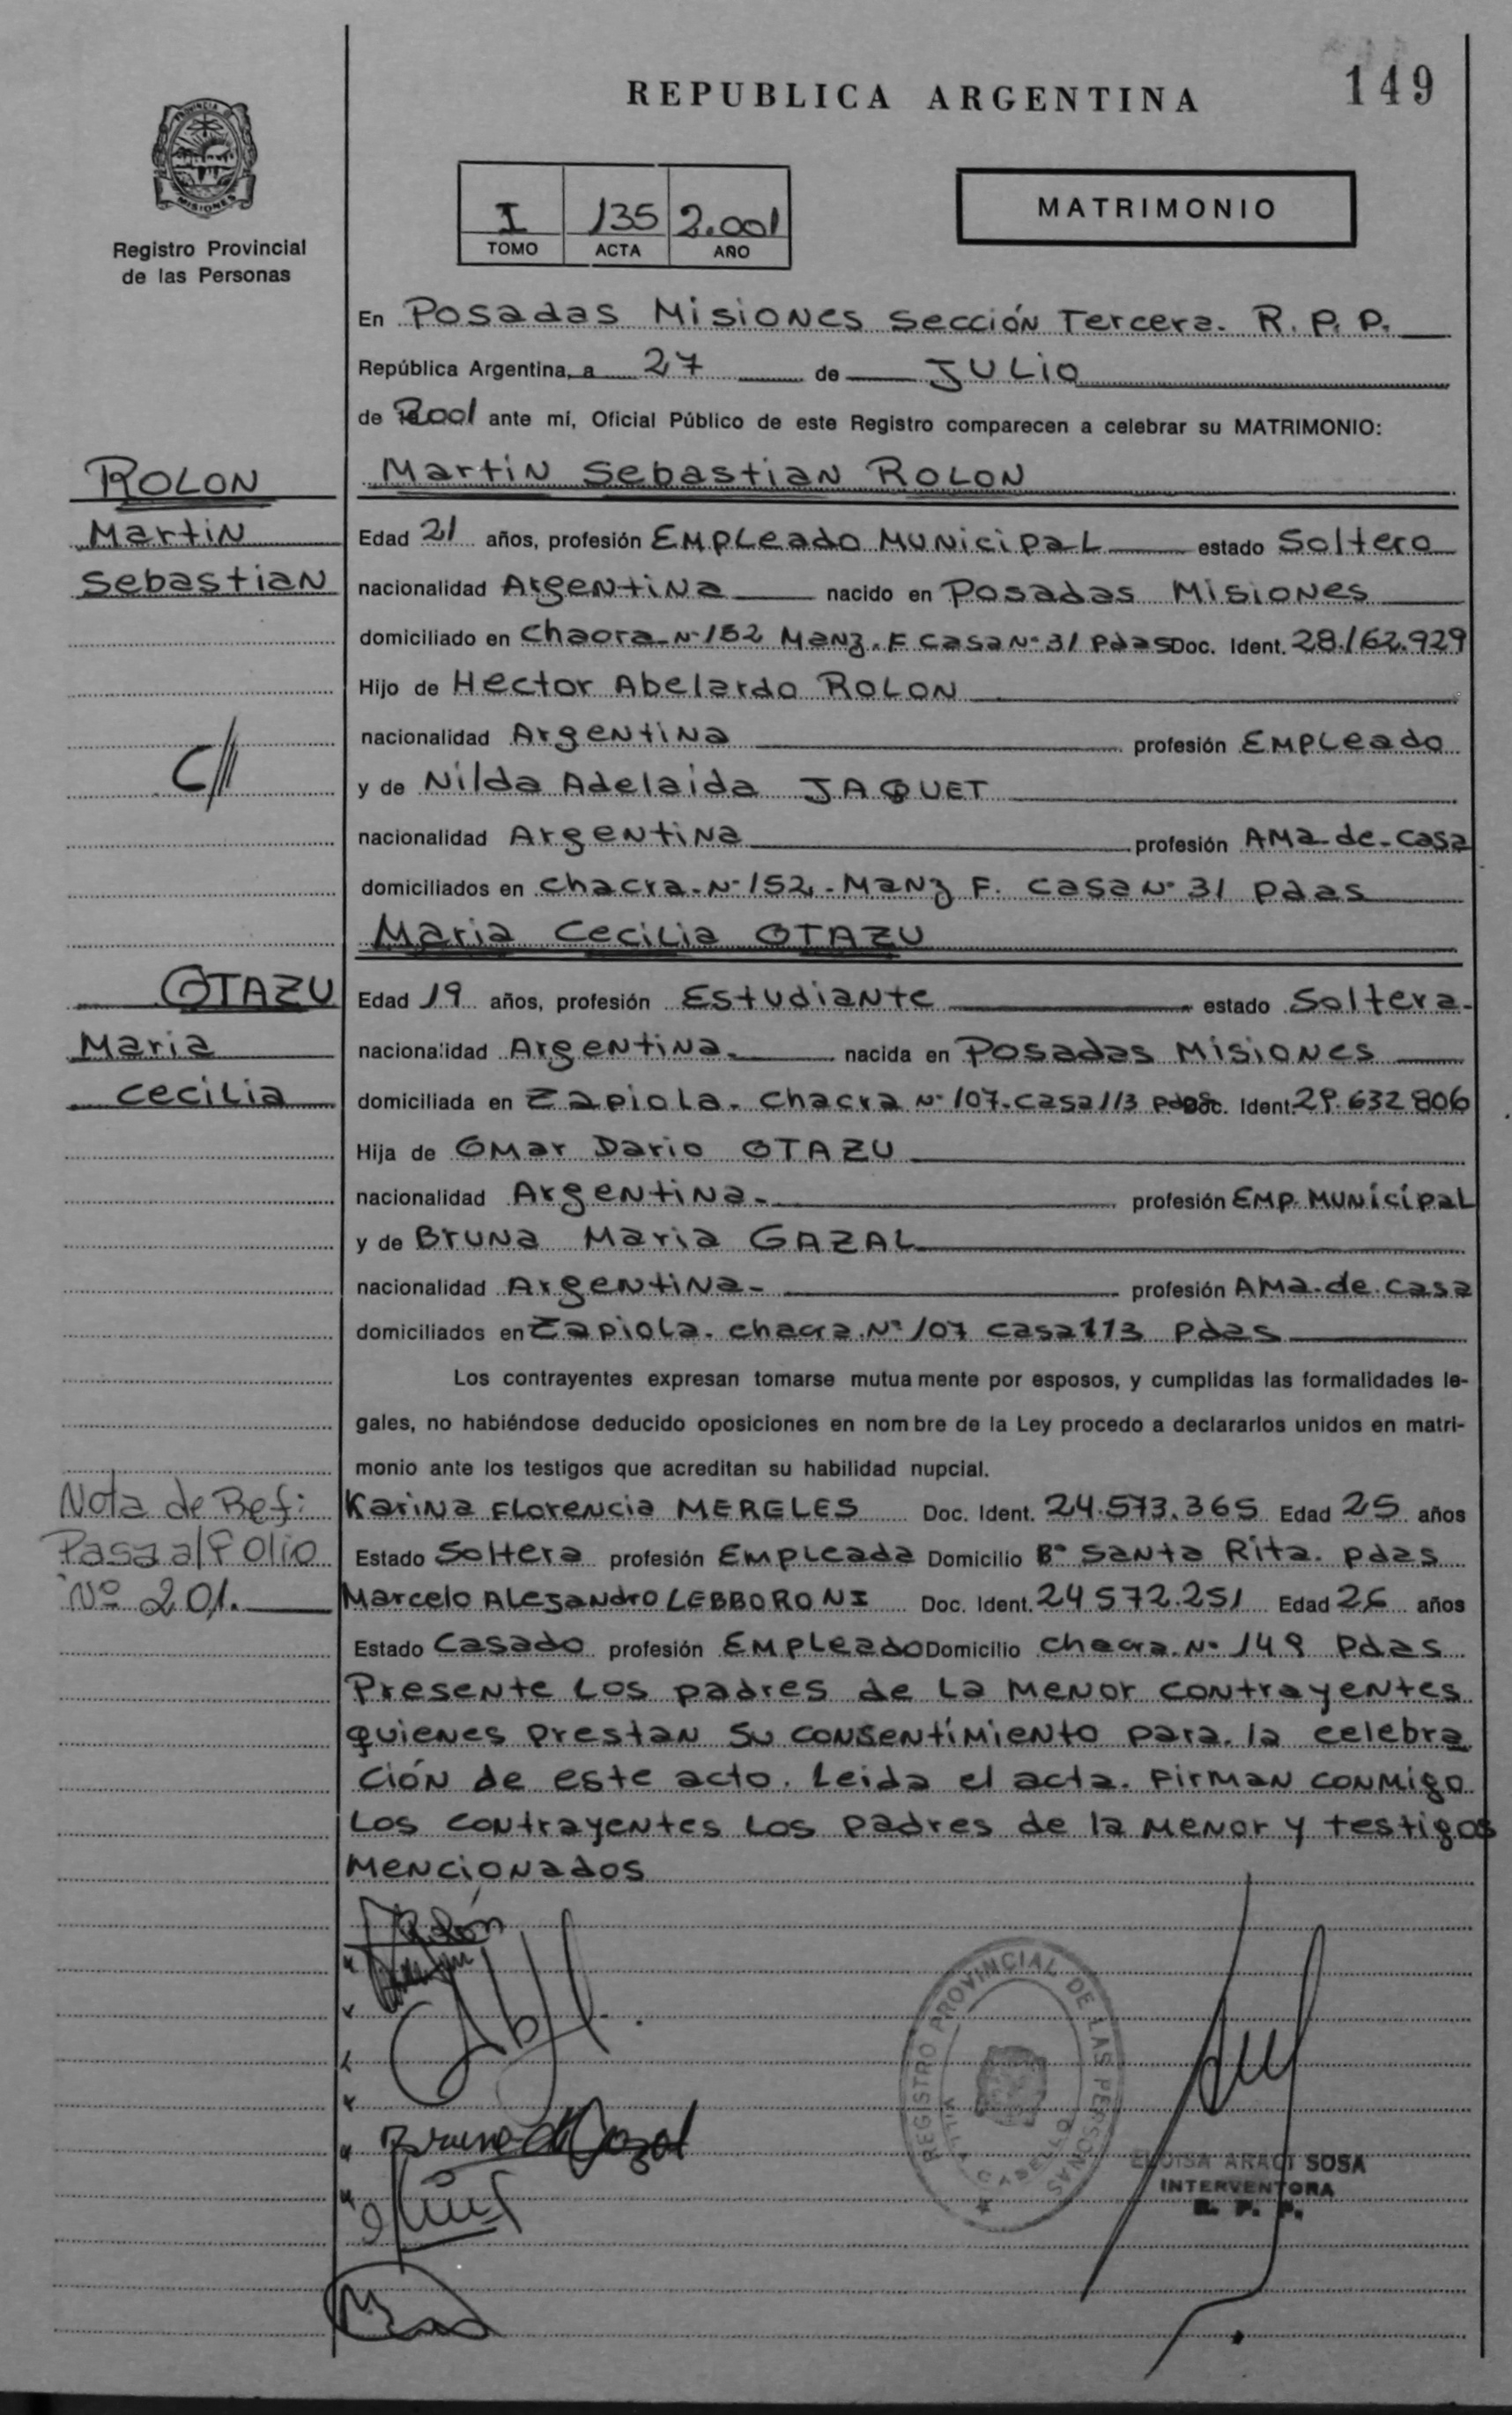 149
REPUBLICA ARGENTINA
PROVINCIA
MISIONES
Registro Provincial
de las Personas
I 135 2.001
TOMO ACTA AÑO
MATRIMONIO
En Posadas Misiones Sección Tercera. R. P. P.
República Argentina, a 27 de JULIO
de 2001 ante mí, Oficial Público de este Registro comparecen a celebrar su MATRIMONIO:
ROLON
Martin
Sebastian
Martin Sebastian ROLON
Edad 21 años, profesión Empleado Municipal estado Soltero
nacionalidad Argentina nacido en Posadas Misiones
domiciliado en Chacra N° 152 Manz. F Casa N° 31 Pdas Doc. Ident. 28.162.929
Hijo de Hector Abelardo ROLON
nacionalidad Argentina profesión Empleado
y de Nilda Adelaida JAQUET
nacionalidad Argentina profesión Ama de casa
domiciliados en Chacra N° 152 - Manz F. Casa N° 31 Pdas
Maria Cecilia OTAZU
OTAZU
Maria
Cecilia
Edad 19 años, profesión Estudiante estado Soltera.
nacionalidad Argentina nacida en Posadas Misiones
domiciliada en Zapiola. Chacra N° 107. Casa 113 Pdas Doc. Ident. 29.632.806
Hija de Omar Dario OTAZU
nacionalidad Argentina profesión Emp. Municipal
y de Bruna Maria GAZAL
nacionalidad Argentina profesión Ama de casa
domiciliados en Zapiola. Chacra N° 107 Casa 113 Pdas
Los contrayentes expresan tomarse mutuamente por esposos, y cumplidas las formalidades le-
gales, no habiéndose deducido oposiciones en nombre de la Ley procedo a declararlos unidos en matri-
monio ante los testigos que acreditan su habilidad nupcial.
Nota de Ref:
Pasa al Folio
Nº 201.
Karina Florencia MERELES Doc. Ident. 24.573.365 Edad 25 años
Estado Soltera profesión Empleada Domicilio B° Santa Rita. Pdas
Marcelo Alejandro LEBBORONI Doc. Ident. 24.572.251 Edad 26 años
Estado Casado profesión Empleado Domicilio Chacra. N° 149 Pdas
Presente los padres de la menor contrayentes
quienes prestan su consentimiento para la celebra
ción de este acto. Leida el acta. Firman conmigo
los contrayentes los padres de la menor y testigos
mencionados
Rolón
REGISTRO PROVINCIAL DE LAS PERSONAS
VILLA CABELLO
ELOISA ARACI SOSA
INTERVENTORA
R. P. P.